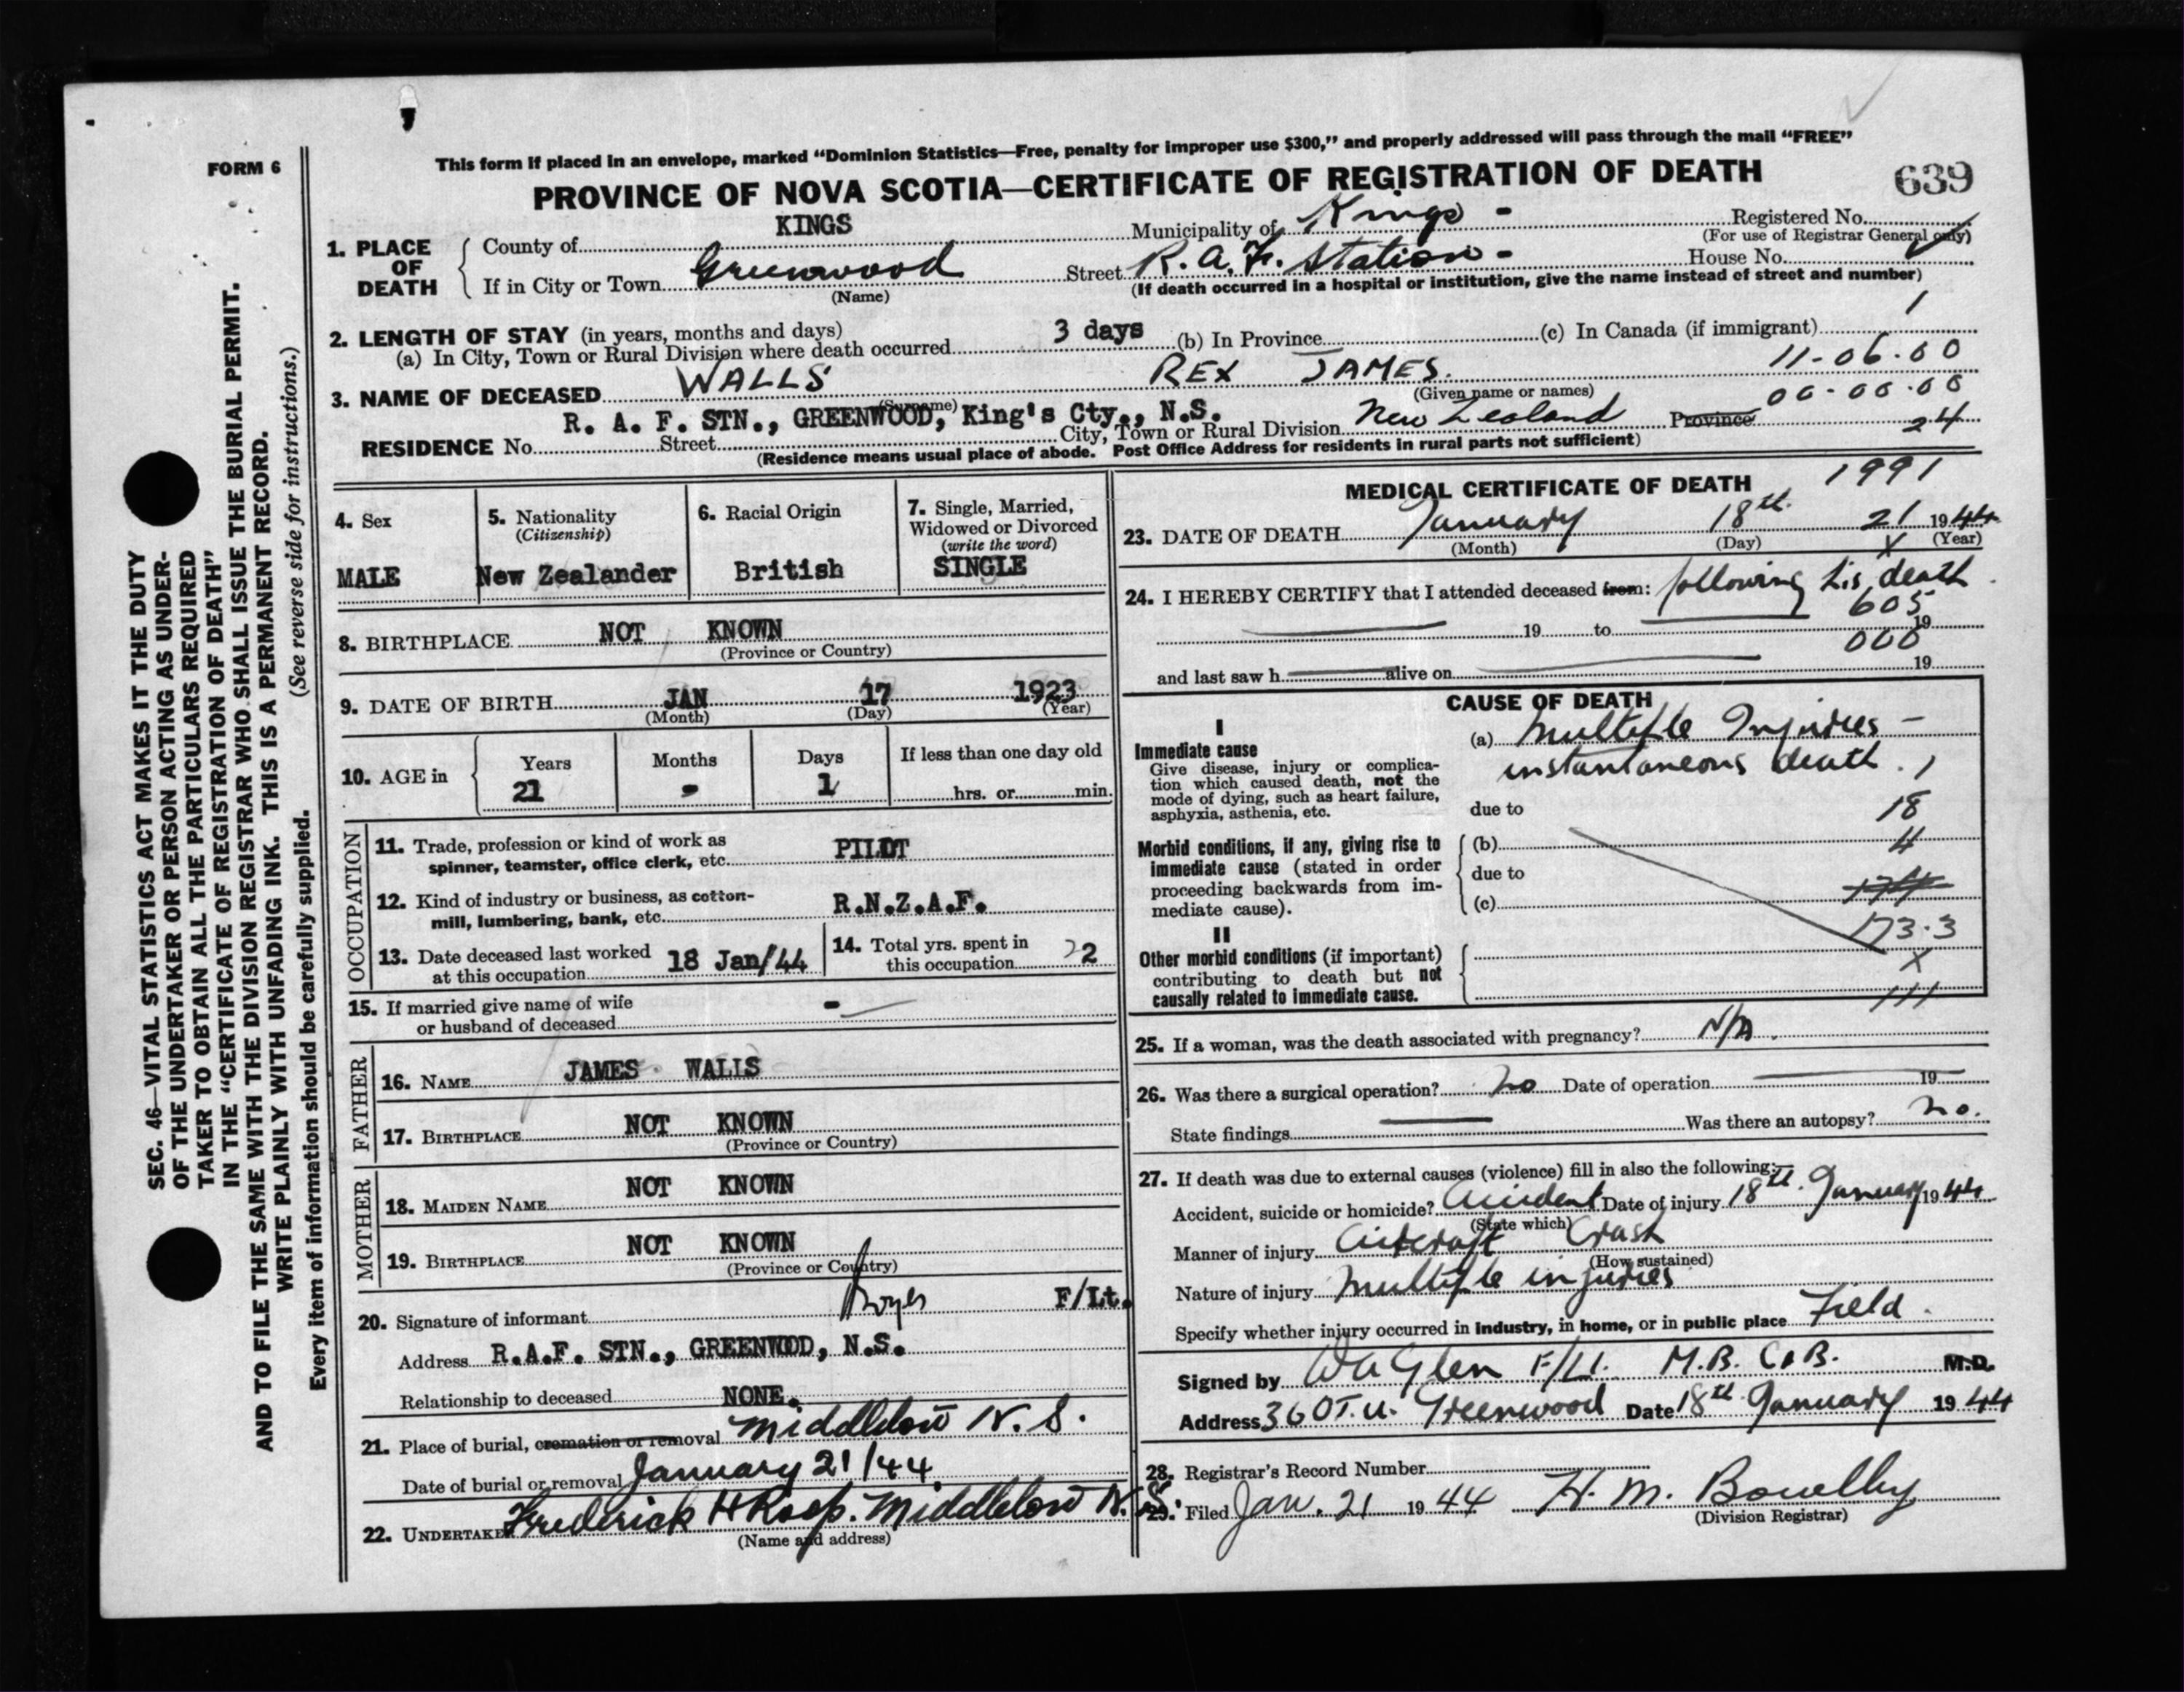 This form if placed in an envelope, marked “Dominion Statistics—Free, penalty for improper use $300,” and properly addressed will pass through the mail “FREE”
FORM 6
PROVINCE OF NOVA SCOTIA—CERTIFICATE OF REGISTRATION OF DEATH
639
SEC. 46—VITAL STATISTICS ACT MAKES IT THE DUTY
OF THE UNDERTAKER OR PERSON ACTING AS UNDER-
TAKER TO OBTAIN ALL THE PARTICULARS REQUIRED
IN THE “CERTIFICATE OF REGISTRATION OF DEATH”
AND TO FILE THE SAME WITH THE DIVISION REGISTRAR WHO SHALL ISSUE THE BURIAL PERMIT.
WRITE PLAINLY WITH UNFADING INK. THIS IS A PERMANENT RECORD.
Every item of information should be carefully supplied. (See reverse side for instructions.)
1. PLACE OF DEATH
County of KINGS Municipality of Kings - Registered No.
(For use of Registrar General only)
If in City or Town Greenwood Street R.A.F. Station - House No.
(Name) (If death occurred in a hospital or institution, give the name instead of street and number)
2. LENGTH OF STAY (in years, months and days) 1
(a) In City, Town or Rural Division where death occurred 3 days (b) In Province (c) In Canada (if immigrant)
11-06-00
3. NAME OF DECEASED WALLS REX JAMES.
(Surname) (Given name or names) 00-00-00
R. A. F. STN., GREENWOOD, King's Cty., N.S.
RESIDENCE No. Street City, Town or Rural Division New Zealand Province 24
(Residence means usual place of abode. Post Office Address for residents in rural parts not sufficient)
4. Sex
MALE
5. Nationality
(Citizenship)
New Zealander
6. Racial Origin
British
7. Single, Married,
Widowed or Divorced
(write the word)
SINGLE
8. BIRTHPLACE NOT KNOWN
(Province or Country)
9. DATE OF BIRTH JAN 17 1923
(Month) (Day) (Year)
10. AGE in
Years Months Days If less than one day old
21 - 1 hrs. or min.
OCCUPATION
11. Trade, profession or kind of work as
spinner, teamster, office clerk, etc. PILOT
12. Kind of industry or business, as cotton-
mill, lumbering, bank, etc. R.N.Z.A.F.
13. Date deceased last worked
at this occupation 18 Jan/44
14. Total yrs. spent in
this occupation 2
15. If married give name of wife
or husband of deceased -
FATHER
16. NAME JAMES WALLS
17. BIRTHPLACE NOT KNOWN
(Province or Country)
MOTHER
18. MAIDEN NAME NOT KNOWN
19. BIRTHPLACE NOT KNOWN
(Province or Country)
20. Signature of informant F/Lt.
Address R.A.F. STN., GREENWOOD, N.S.
Relationship to deceased NONE.
21. Place of burial, cremation or removal Middleton N.S.
Date of burial or removal January 21/44
22. UNDERTAKER Frederick H Roop. Middleton N.S.
(Name and address)
MEDICAL CERTIFICATE OF DEATH 1991
23. DATE OF DEATH January 18th. 21 1944
(Month) (Day) X (Year)
24. I HEREBY CERTIFY that I attended deceased from: following his death.
605
19 to 19
000
and last saw h alive on 19
CAUSE OF DEATH
I
Immediate cause
Give disease, injury or complica-
tion which caused death, not the
mode of dying, such as heart failure,
asphyxia, asthenia, etc.
(a) Multiple Injuries -
instantaneous death. 1
due to 18
Morbid conditions, if any, giving rise to
immediate cause (stated in order
proceeding backwards from im-
mediate cause).
(b) 4
due to
(c)
173.3
II
Other morbid conditions (if important)
contributing to death but not
causally related to immediate cause.
X
111
25. If a woman, was the death associated with pregnancy? N/A.
26. Was there a surgical operation? no Date of operation 19
State findings Was there an autopsy? no.
27. If death was due to external causes (violence) fill in also the following:
Accident, suicide or homicide? Accident Date of injury 18th. January 1944
(State which)
Manner of injury Aircraft Crash
(How sustained)
Nature of injury Multiple injuries
Specify whether injury occurred in industry, in home, or in public place Field.
Signed by W A Glen F/Lt. M.B. Ch.B. M.D.
Address 36 O.T.U. Greenwood Date 18th January 1944
28. Registrar's Record Number
29. Filed Jan. 21 1944 H. M.
(Division Registrar)